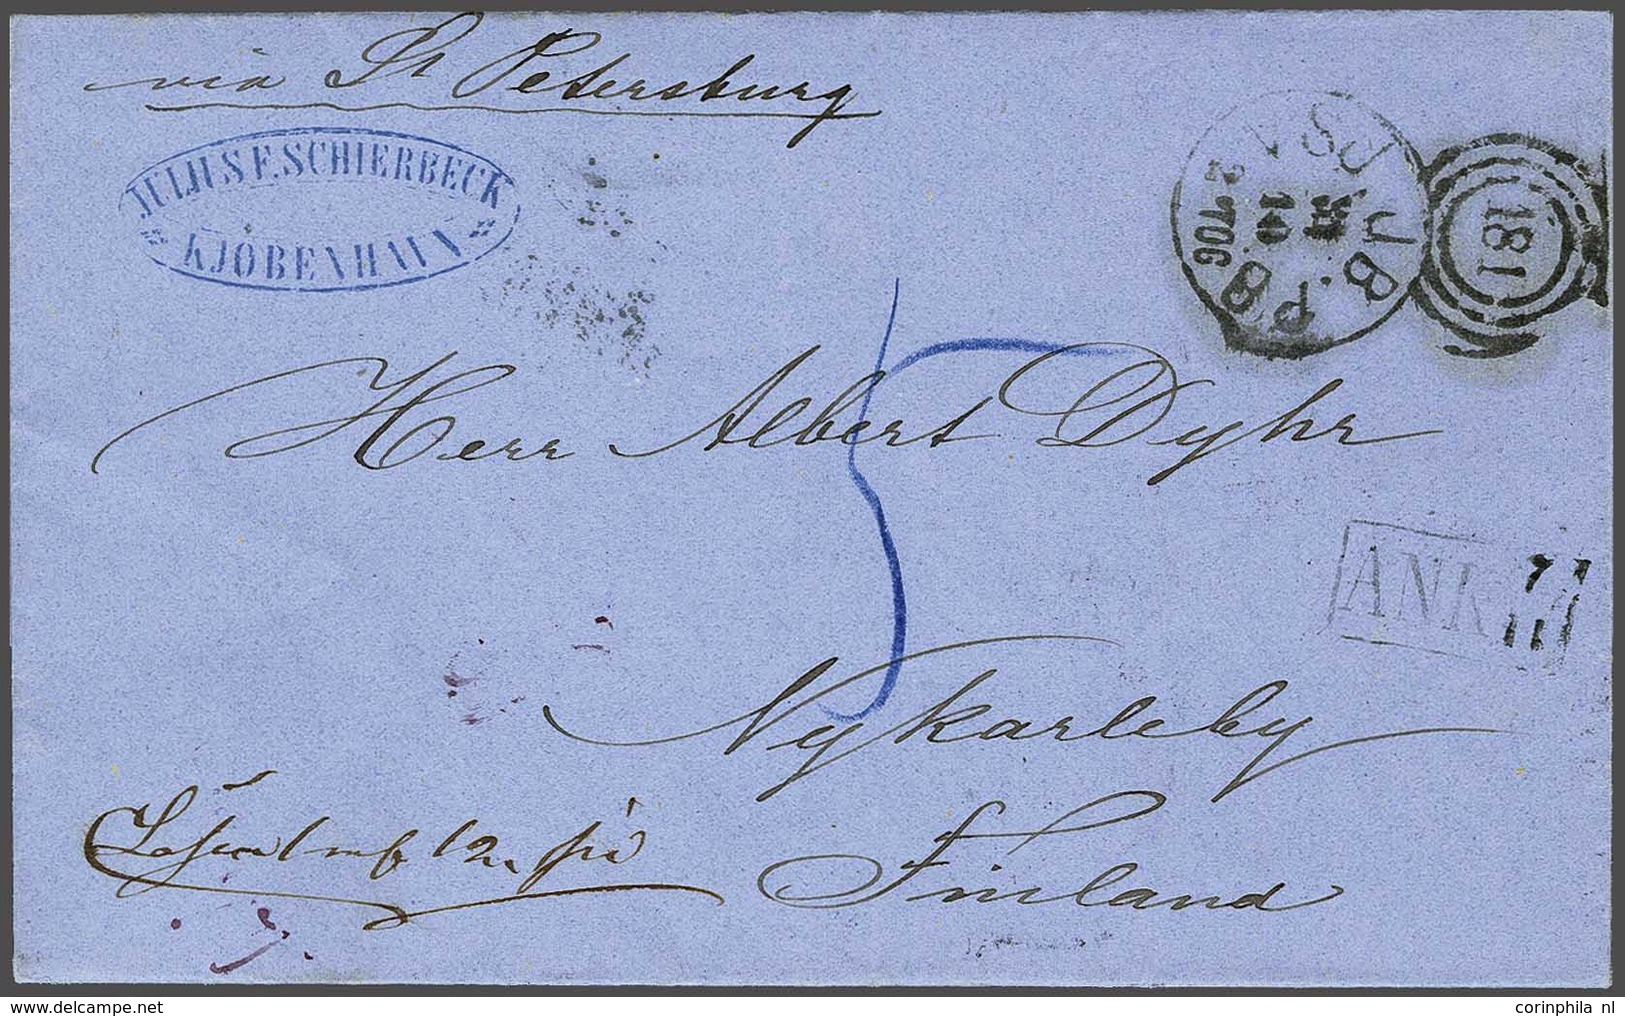 via St Petersburg
JULIUS F. SCHIERBECK
KJÖBENHAVN
JYDSK J.B.P.B.
10
2 TOG
181
5
Herr Albert Dyhr
ANK
Nykarleby
Finland
corinphila nl